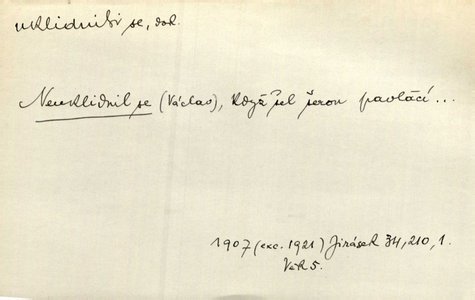 uklidniti se, dok.
Neuklidnil se (Václav), když šel šerou pavlačí...
1907 (exc. 1921) Jirásek 34, 210, 1.
Věk 5.